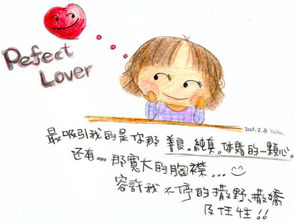 Pefect
Lover
2001.2.8
最吸引我的是你那 善良。純真。体贴的一顆心。
还有...那寬大的胸襟...
容許我 不停的撒野、撒嬌
及任性!!